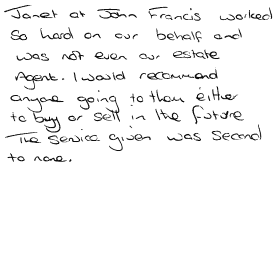 Janet at John Francis worked
so hard on our behalf and
was not even our estate
Agent. I would recommend
anyone going to them either
to buy or sell in the future
The service given was second
to none.